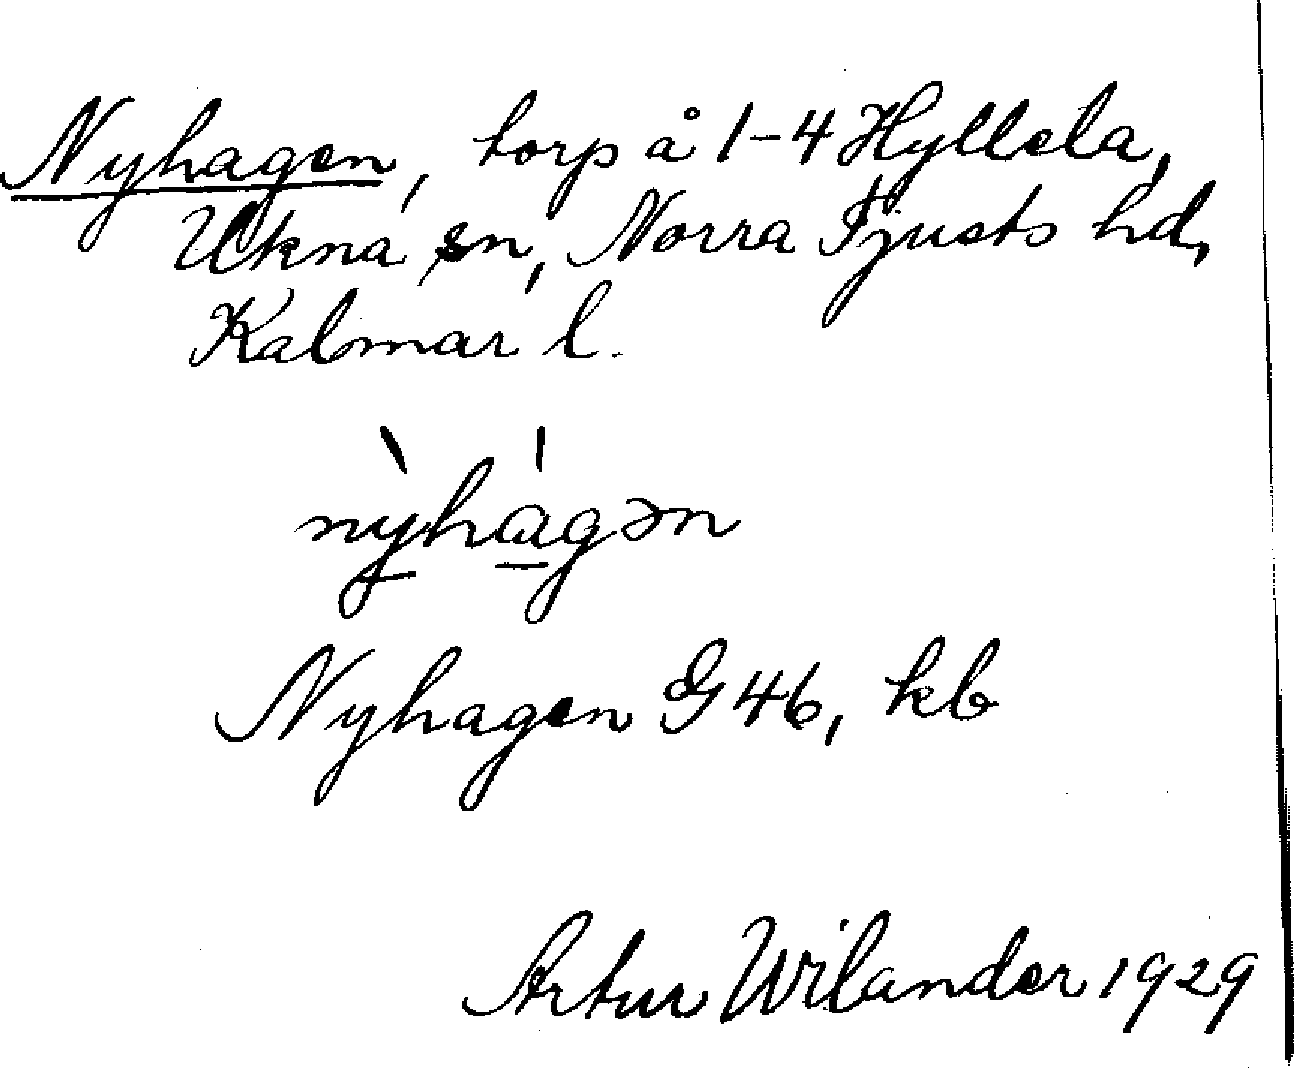 Nyhagen, torp å 1-4 Hyllela,
Ukna sn, Norra Tjusts hd,
Kalmar l.
nỳhágən
Nyhagen G46, kb
Artur Wilander 1929